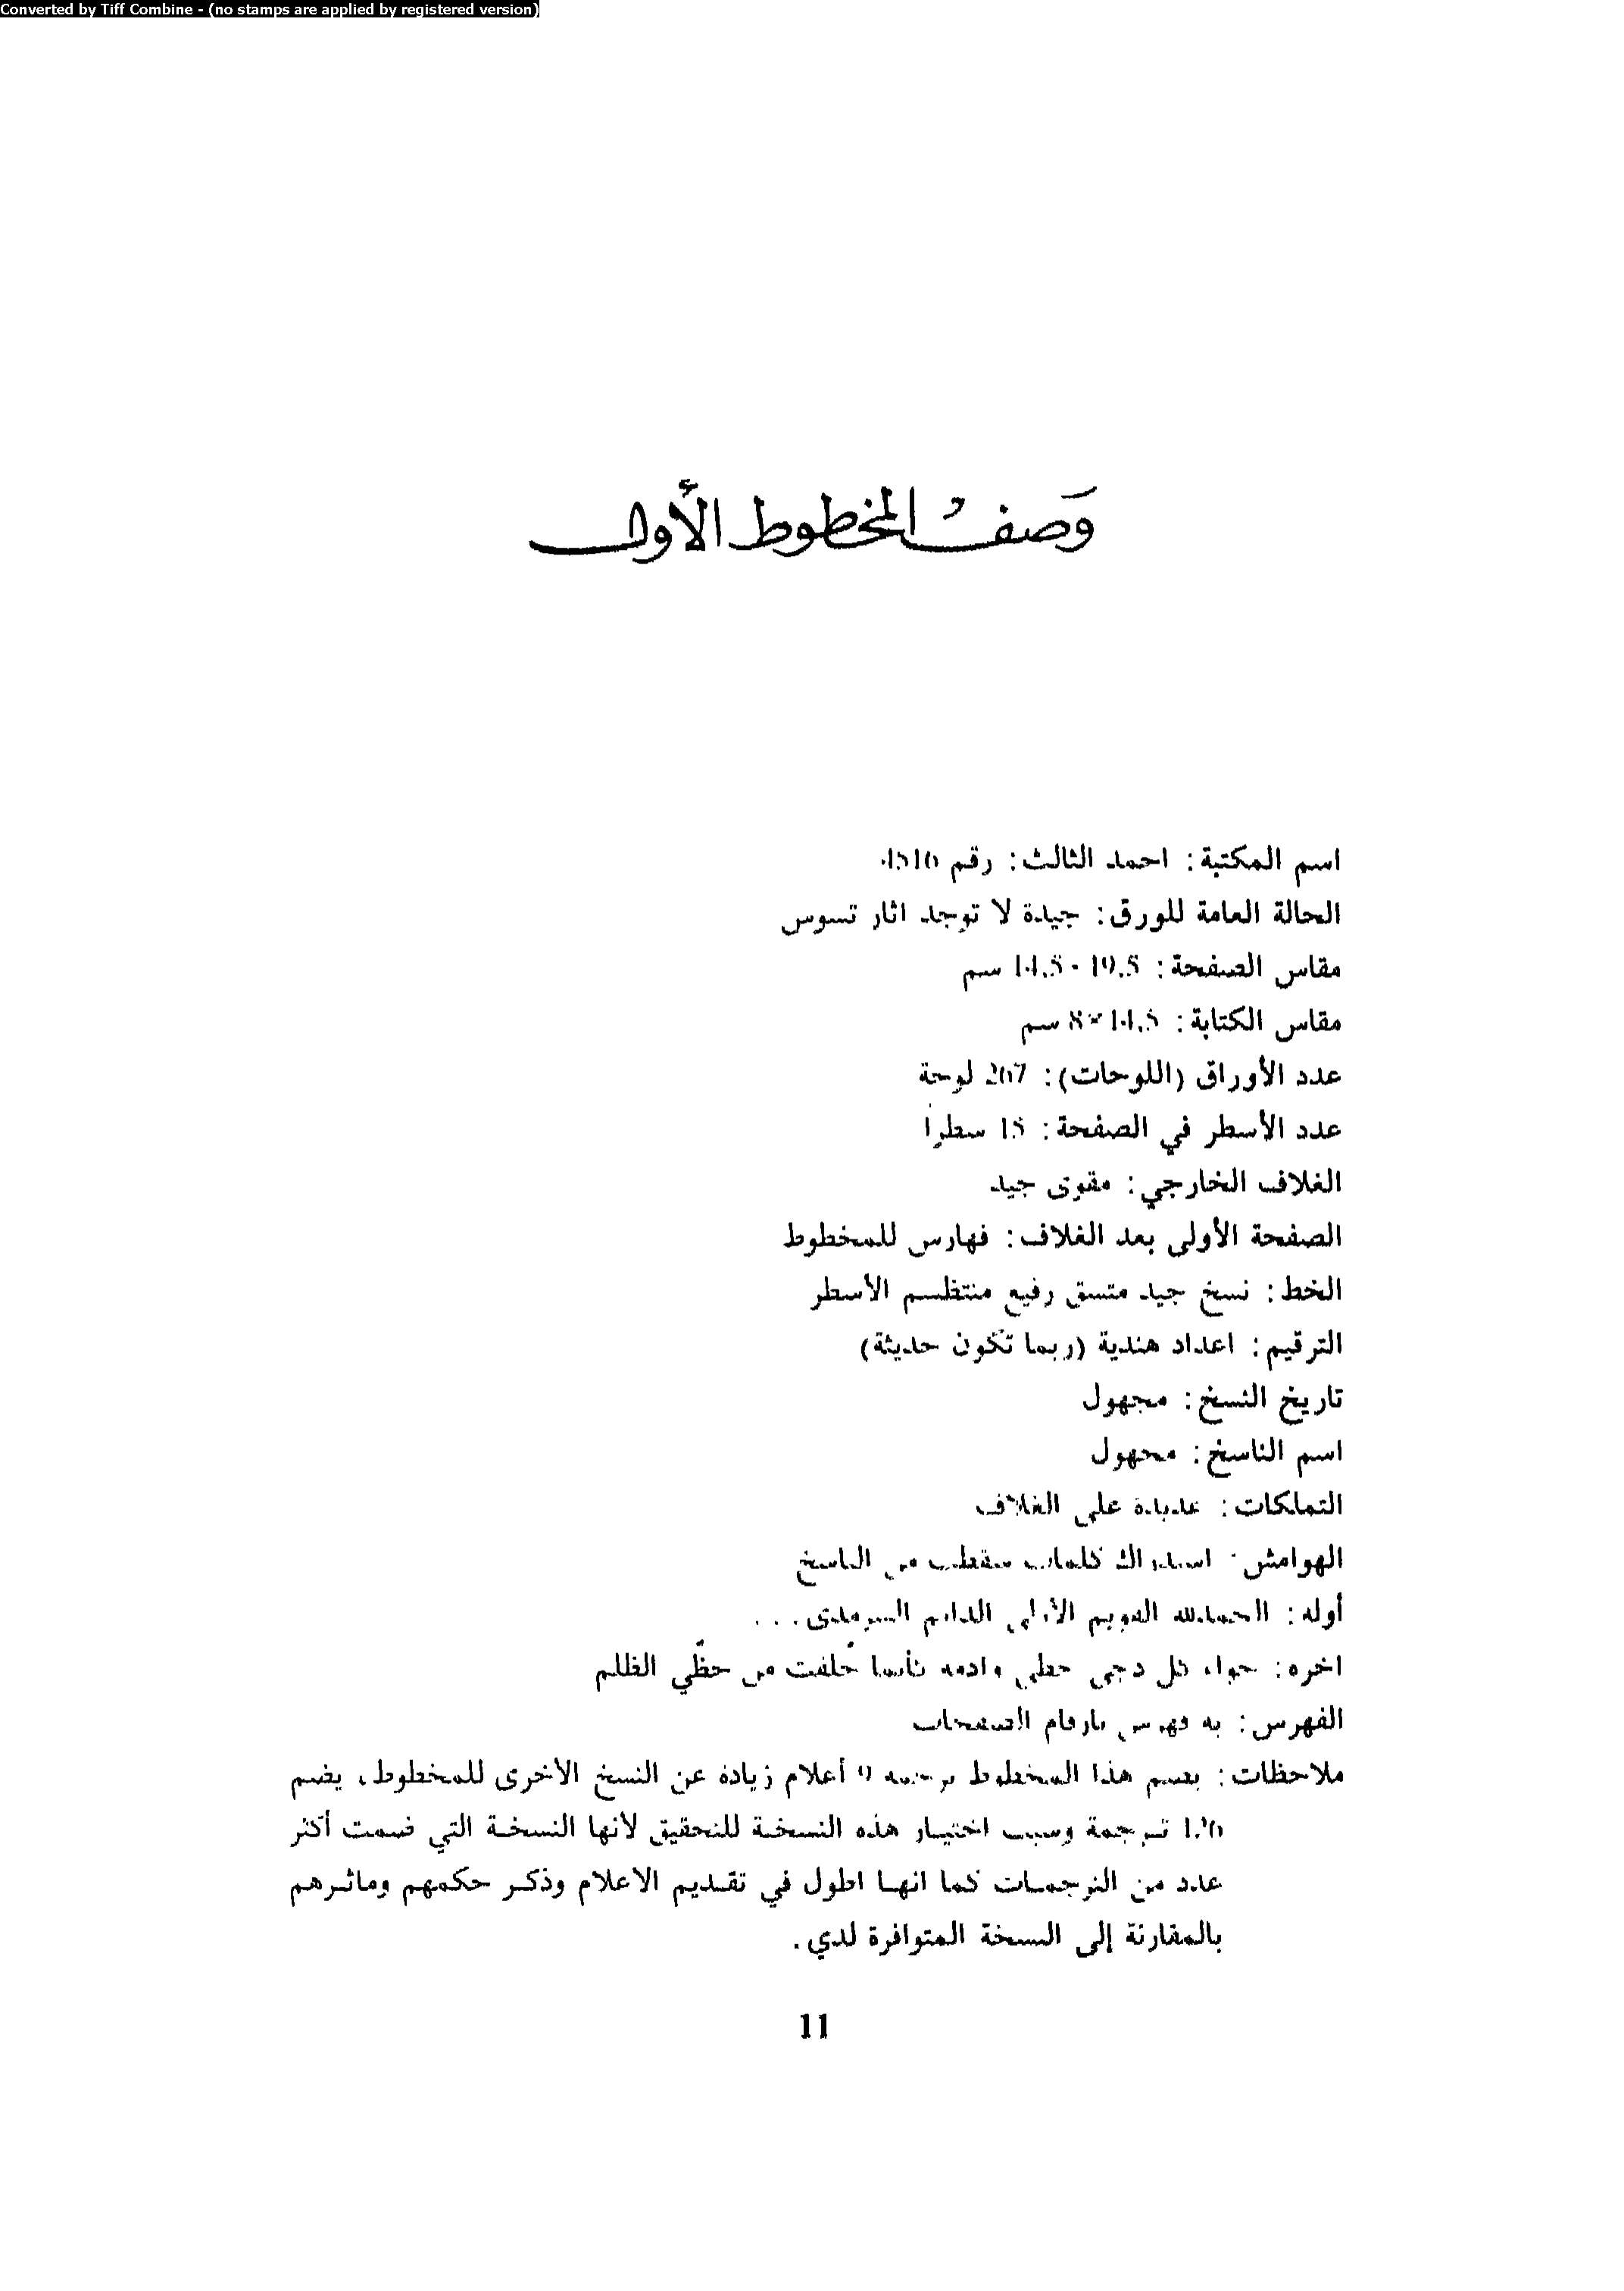 Converted by Tiff Combine - (no stamps are applied by registered version)
وَصفُ المخطوط الأَول
اسم المكتبة: احمد الثالث: رقم
الحالة العامة للورق: جيدة لا توجد اثار تسوس
مقاس الصفحة: 19.5 - 14.5 سم
مقاس الكتابة: 14.5 × 8 سم
عدد الأوراق (اللوحات): 267 لوحة
عدد الأسطر في الصفحة: 15 سطراً
الغلاف الخارجي: مقوى جيد
الصفحة الأولى بعد الغلاف: فهارس للمخطوط
الخط: نسخ جيد متسق رفيع منتظم الأسطر
الترقيم: اعداد هندية (ربما تكون حديثة)
تاريخ النسخ: مجهول
اسم الناسخ: مجهول
التملكات: عديدة على الغلاف
الهوامش: استدراك كلمات سقطت من الناسخ
أوله: الحمدلله القديم الأزلي الدائم السرمدي . . .
اخره: كل دجى حظي خُلقت من حظّي الظلم
الفهرس: به فهرس بارقام الصفحات
ملاحظات: هذا المخطوط 9 أعلام زيادة عن النسخ الأخرى للمخطوط، يضم
ترجمة وسبب اختيار هذه النسخة للتحقيق لأنها النسخة التي ضمت أكثر
عدد من الترجمات كما انها اطول في تقديم الاعلام وذكر حكمهم وماثرهم
بالمقارنة إلى النسخة المتوافرة لدي.
11